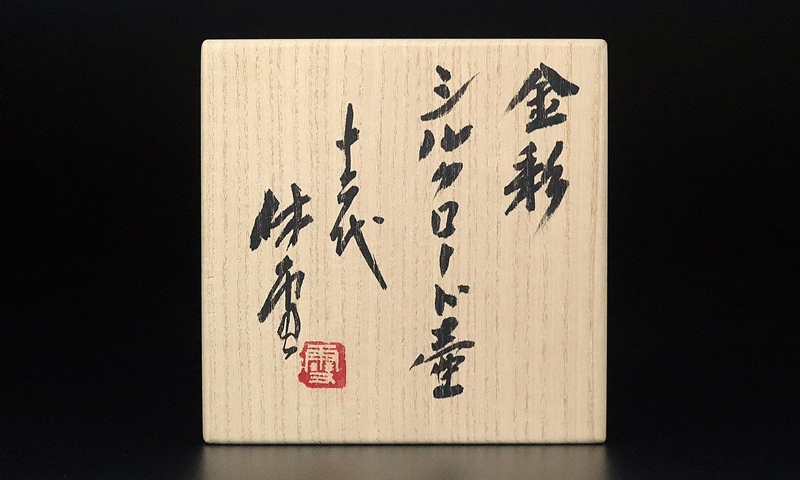 金彩
シルクロード壷
十二代
休雪
雪